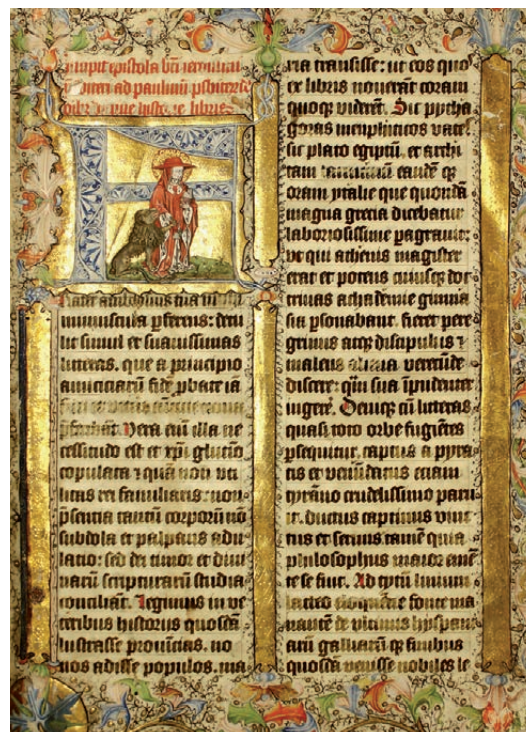 ncipit epistola bti ieronimi
ad paulinū psbiterū
libris
F
Rater ambrosius tua michi
munuscula ꝑferens: detu
lit simul et suauissimas
litteras. que a principio
amiciciarū fidē ꝓbate iā
ꝑferebāt. Vera em̄ illa ne
cessitudo est et xp̄i glutino
copulata ⁊ quā non vti
litas rei familiaris: non
p̄sentia tantū corporū nō
subdola et palpans adu
latio: sed dei timor et diui
narū scripturarū studia
conciliāt. Legimus in ve
teribus historiis quosdā
lustrasse prouīcias. no
uos adisse populos. ma
ria transisse: ut eos quos
ex libris nouerāt coram
quoqꝫ viderēt. Sic pytha
goras memphiticos vates
sic plato egiptū. et archi
tam tarentinū eandē qꝫ
oram ytalie que quondā
magna grecia dicebatur
laboriosissime ꝑagrauit:
vt qui athenis magister
erat et potens cuiusqꝫ doc
trinas achademie gimna
sia ꝑsonabant. fieret pere
grinus atqꝫ discipulus ⁊
malens aliena verecūde
discere: qͣ̄ sua īprudenter
ingere. Deniqꝫ cū litteras
quasi toto orbe fugiētes
ꝑsequitur. captus a pyra
tis et venūdatus etiam
tyrāno crudelissimo pari
it. ductus captiuus vinc
tus et seruus tamē quia
philosophus maior emē
te se fuit. Ad tytū liuium
lacteo eloquētie fonte ma
nantē de vltimis hyspani
arū galliarū qꝫ finibus
quosdā venisse nobiles le